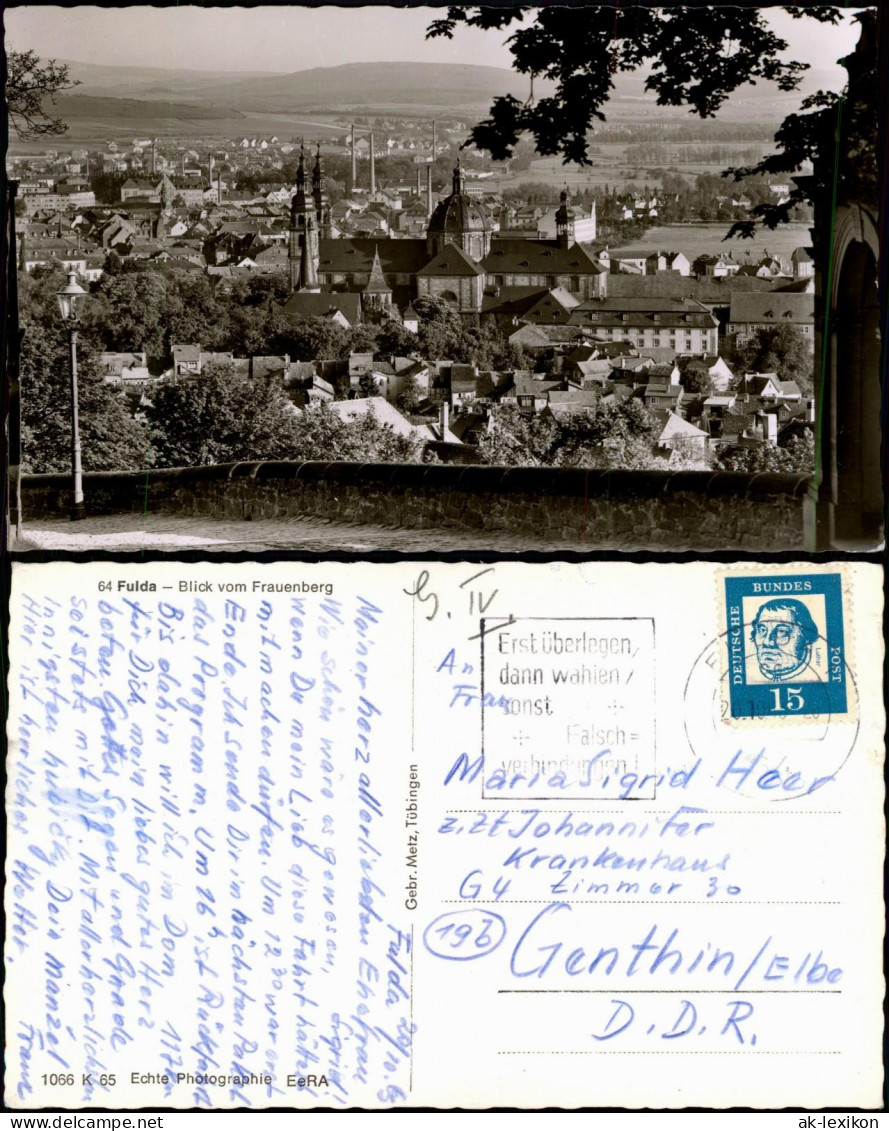 64 Fulda – Blick vom Frauenberg
G. IV.
Erst überlegen,
dann wählen,
sonst
Falsch=
verbindungen!
DEUTSCHE
BUNDES
POST
Luther
15
An
Frau
Maria Sigrid Heer
z. Zt Johanniter
Krankenhaus
G4 Zimmer 30
19b
Genthin/Elbe
D.D.R.
Gebr. Metz, Tübingen
Fulda 20/10 63
Meiner herzallerliebsten Ehefrau
Sigrid!
Wie schön wäre es gewesen,
wenn Du mein Lieb diese Fahrt hättest
mitmachen dürfen. Um 12 30 war erst
Ende. Ich sende Dir im nächsten Paket
das Programm. Um 16 h ist Rückfahrt
Bis dahin will ich im Dom
für Dich mein liebes gutes Herz
beten. Gottes Segen und Gnade
sei stets mit Dir. Mit allerherzlichsten
innigsten Dein Mänzel
Hier ist herrliches Wetter. Franz
1066 K 65 Echte Photographie EeRA
ak-lexikon